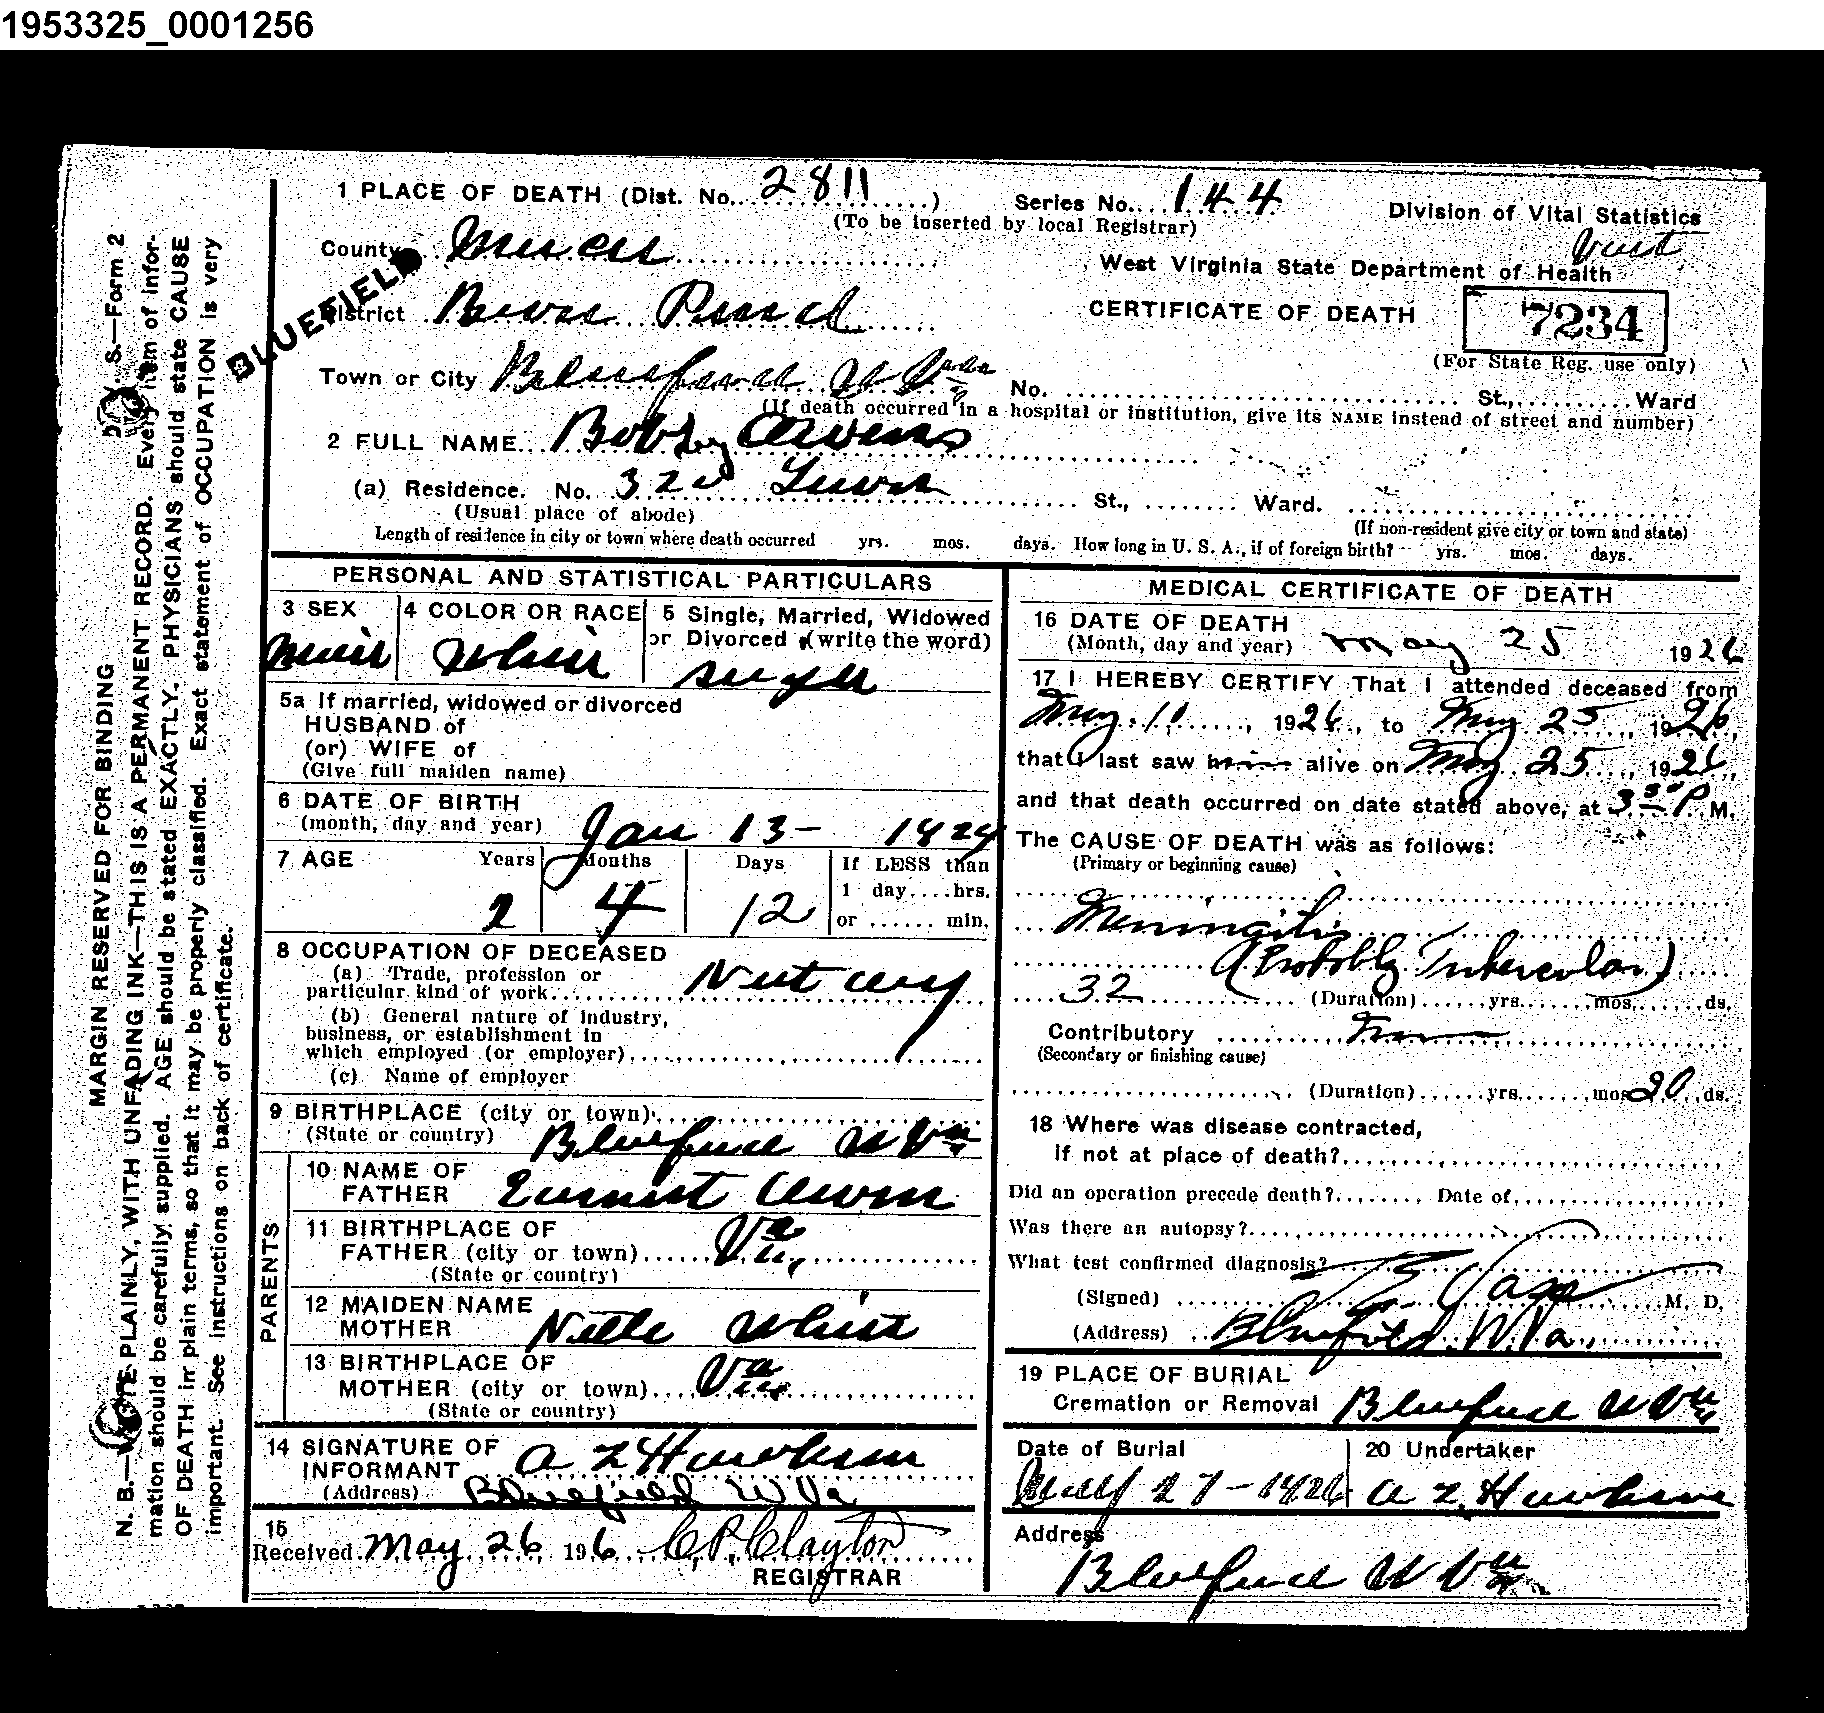 1953325_0001256
1 PLACE OF DEATH (Dist. No. 2811 ) Series No. 144
(To be inserted by local Registrar)
Division of Vital Statistics
County Mercer
West Virginia State Department of Health
BLUEFIELD
District Beaver Pond
CERTIFICATE OF DEATH
7234
(For State Reg. use only)
Town or City Bluefield W Va No. St., Ward
(If death occurred in a hospital or institution, give its NAME instead of street and number)
2 FULL NAME Bobby Owens
(a) Residence. No. 320 St., Ward.
(Usual place of abode) (If non-resident give city or town and state)
Length of residence in city or town where death occurred yrs. mos. days. How long in U. S. A., if of foreign birth? yrs. mos. days.
PERSONAL AND STATISTICAL PARTICULARS
3 SEX 4 COLOR OR RACE 5 Single, Married, Widowed
or Divorced (write the word)
Male White single
5a If married, widowed or divorced
HUSBAND of
(or) WIFE of
(Give full maiden name)
6 DATE OF BIRTH
(month, day and year) Jan 13 - 1924
7 AGE Years Months Days If LESS than
1 day....hrs.
or ...... min.
2 4 12
8 OCCUPATION OF DECEASED
(a) Trade, profession or
particular kind of work
(b) General nature of industry,
business, or establishment in
which employed (or employer)
(c) Name of employer
9 BIRTHPLACE (city or town)
(State or country) Bluefield W Va
PARENTS
10 NAME OF
FATHER Earnest Owens
11 BIRTHPLACE OF
FATHER (city or town) Va,
(State or country)
12 MAIDEN NAME
MOTHER Nelle White
13 BIRTHPLACE OF
MOTHER (city or town) Va
(State or country)
14 SIGNATURE OF
INFORMANT A Z Hawkins
(Address) Bluefield W Va
15
Received May 26 1926 C. P. Clayton
REGISTRAR
MEDICAL CERTIFICATE OF DEATH
16 DATE OF DEATH
(Month, day and year) May 25 1926
17 I HEREBY CERTIFY That I attended deceased from
May. 10, 1926, to May 25, 1926,
that I last saw alive on May 25, 1926,
and that death occurred on date stated above, at 3:30 P. M.
The CAUSE OF DEATH was as follows:
(Primary or beginning cause)
Meningitis
(Probably Tubercular)
32 (Duration) yrs. mos. ds.
Contributory
(Secondary or finishing cause)
(Duration) yrs. mos 20 ds.
18 Where was disease contracted,
If not at place of death?
Did an operation precede death? Date of
Was there an autopsy?
What test confirmed diagnosis?
(Signed) M. D.
(Address) Bluefield W. Va.
19 PLACE OF BURIAL
Cremation or Removal Bluefield W Va
Date of Burial 20 Undertaker
May 27 - 1926 A Z. Hawkins
Address
Bluefield W Va
V. S.—Form 2
MARGIN RESERVED FOR BINDING
N. B.—WRITE PLAINLY, WITH UNFADING INK—THIS IS A PERMANENT RECORD. Every item of infor-
mation should be carefully supplied. AGE should be stated EXACTLY. PHYSICIANS should state CAUSE
OF DEATH in plain terms, so that it may be properly classified. Exact statement of OCCUPATION is very
important. See instructions on back of certificate.